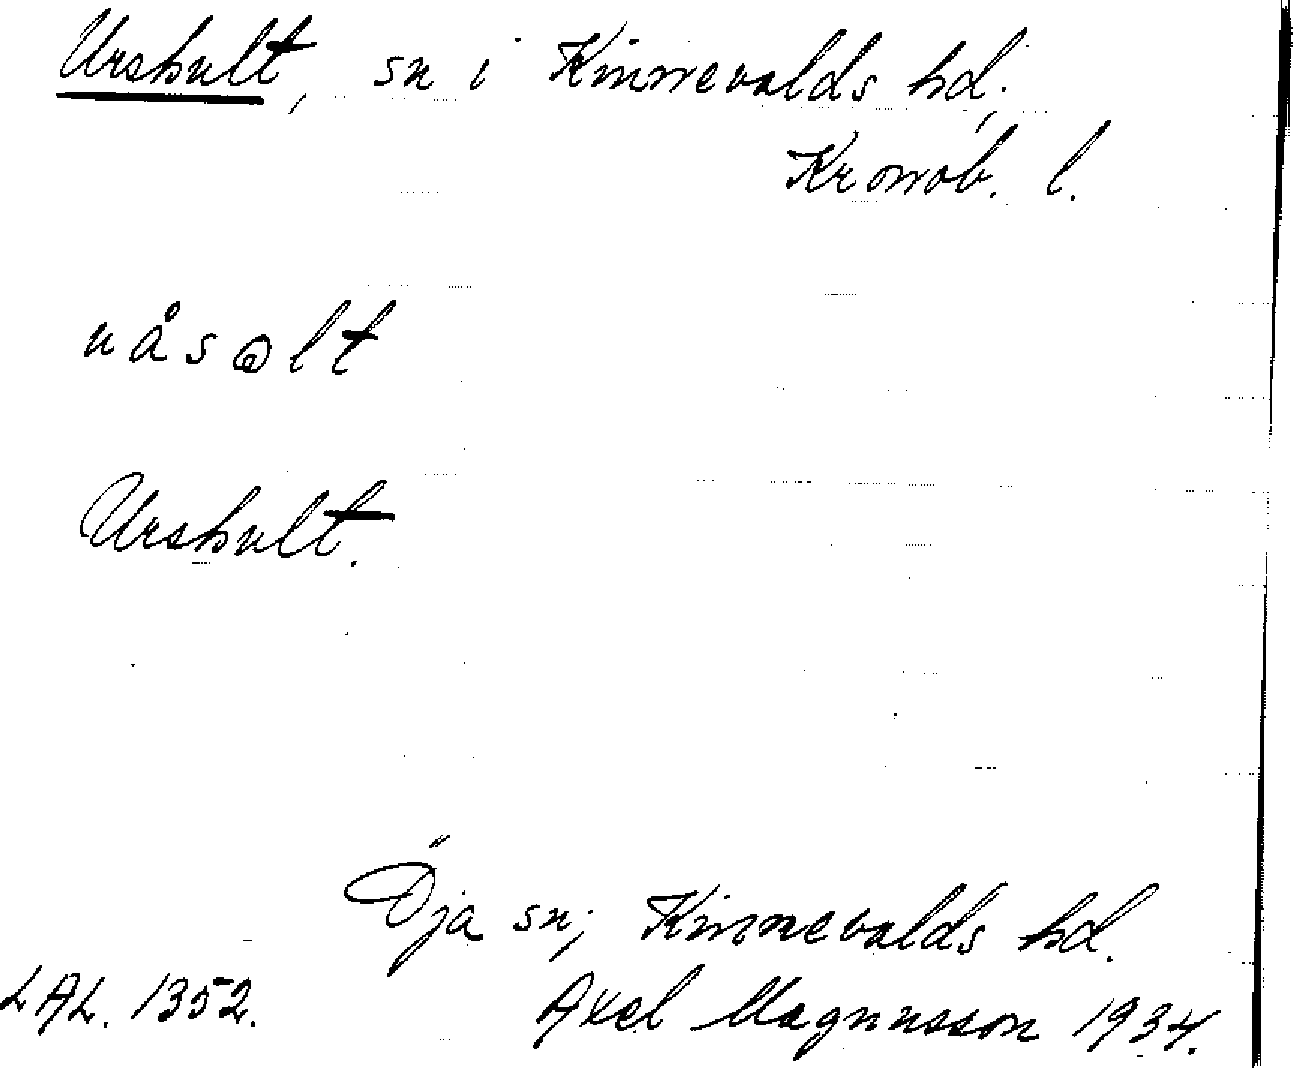 Urshult, sn i Kinnevalds hd,
Kronob. l.
Urshult.
Öja sn; Kinnevalds hd.
LAL. 1352.
Axel Magnusson 1934.